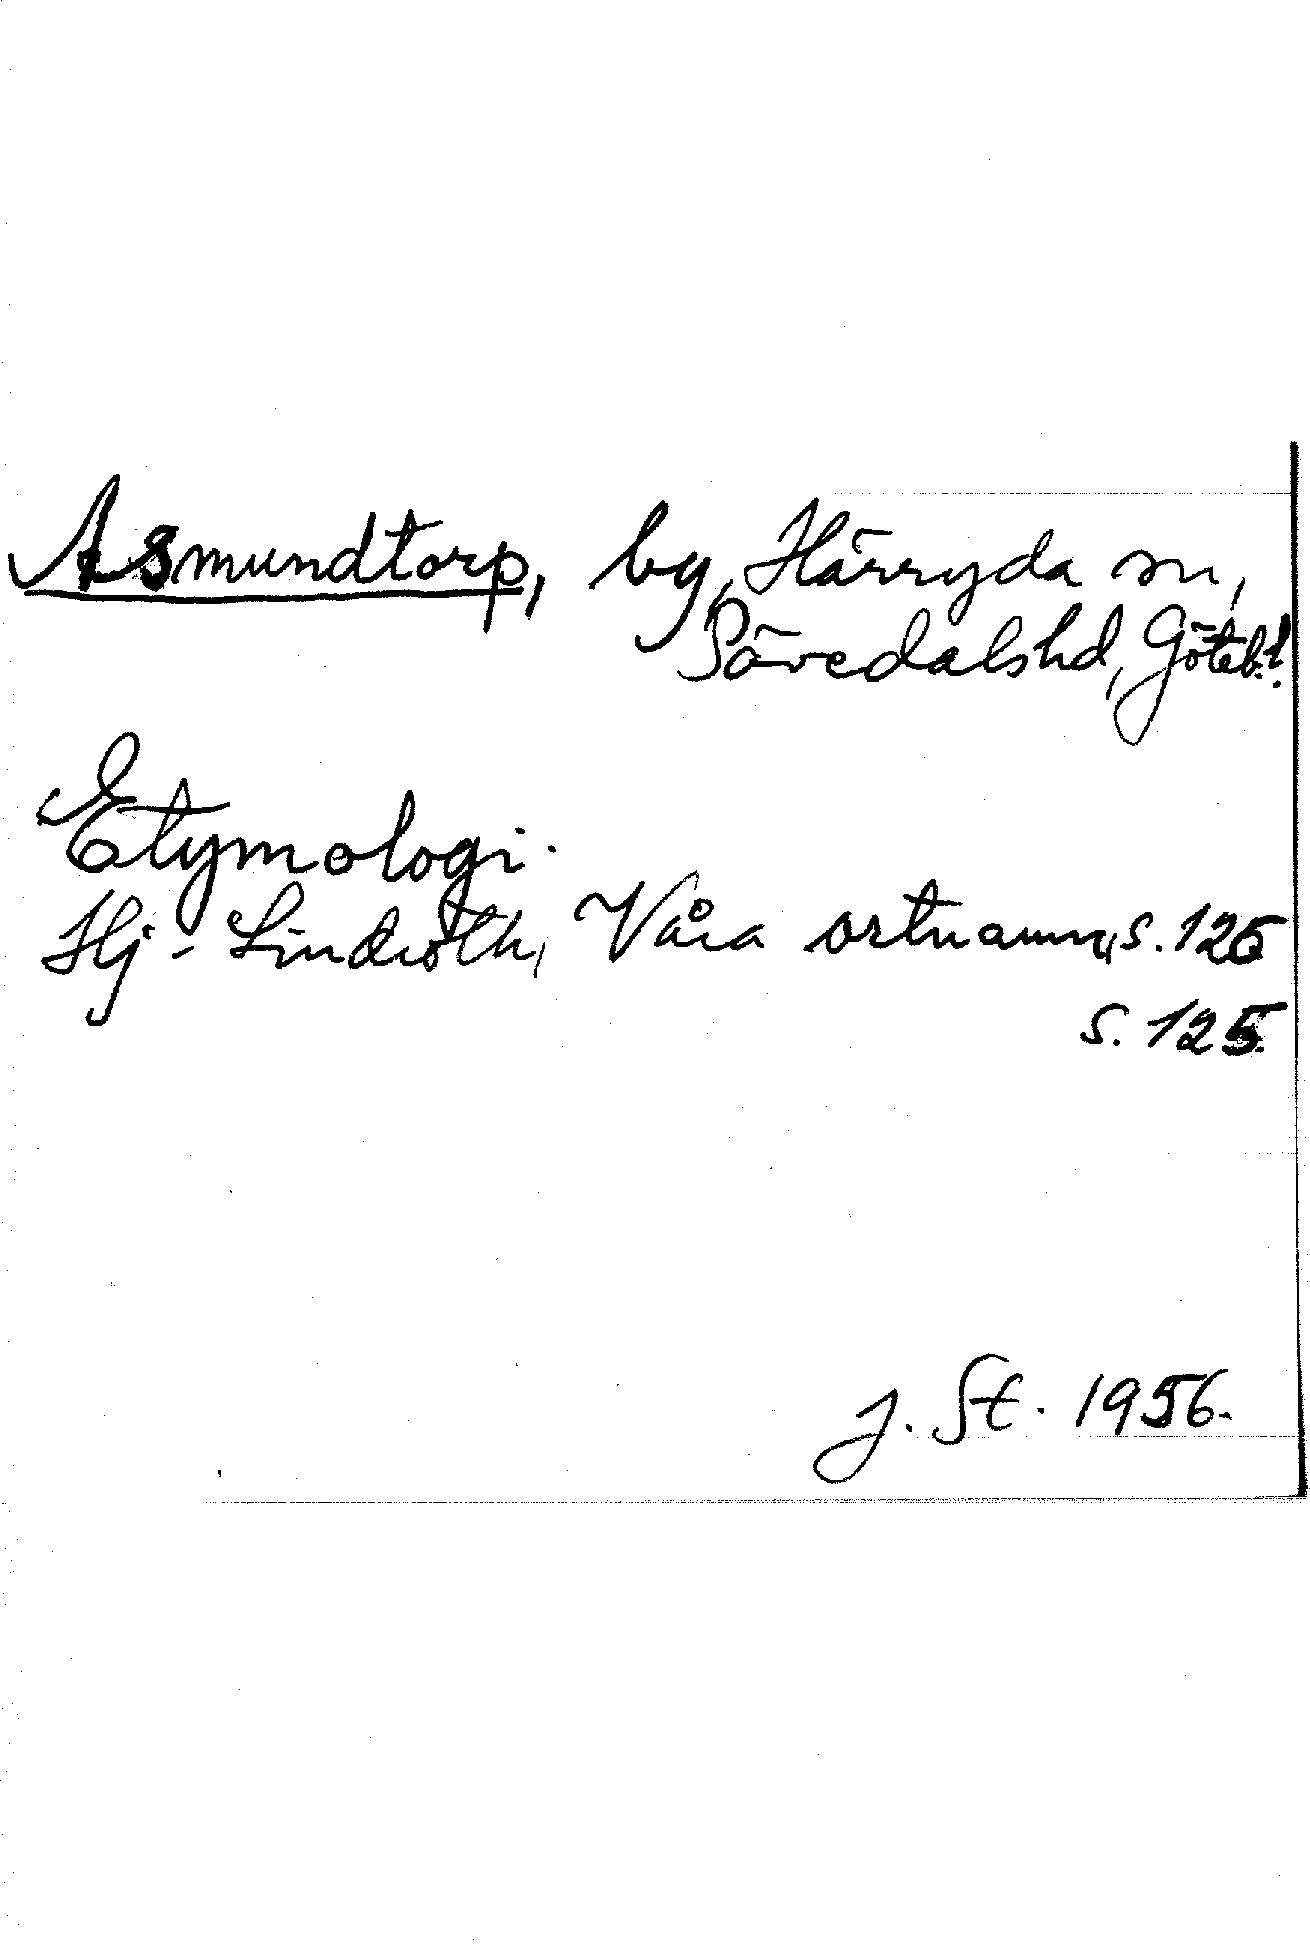 Asmundtorp, by, Härryda sn,
Sävedalshd, Göteb.l.
Etymologi.
Hj. Lindroth, Våra ortnamn, s. 126
s. 125.
J. St. 1956.